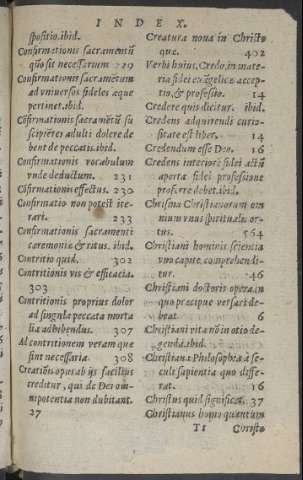 INDEX.
spositio.ibid.
Confirmationis sacramentū
quō sit necessarum 229
Confirmationis sacramētum
ad vniuersos fideles æque
pertinet.ibid.
Cōfirmationis sacramētū su
scipiētes adulti dolere de
bent de peccatis.ibid.
Confirmationis vocabulum
vnde deductum. 231
Cōfirmationis effectus. 230
Confirmatio non potest ite-
rari. 233
Confirmationis sacramenti
ceremonia & ritus. ibid.
Contritio quid. 302
Contritionis vis & efficacia.
303
Contritionis proprius dolor
ad singula peccata morta
lia adhibendus. 307
Ad contritionem veram quæ
sint necessaria 308
Creatiōis opus ab ijs facilius
creditur, qui de Dei om-
nipotentia non dubitant.
27
Creatura noua in Christo
quæ. 402
Verbi huius, Credo, in mate-
ria fidei euāgelicæ accep-
tio, & professio. 14
Credere quis dicitur. ibid.
Credens adquirendi curio-
sitate est liber. 14
Credendum esse Deo. 16
Credens interiore fidei actū
aperta fidei professione
proferre debet.ibid.
Chrisma Christianorum om
nium vnus spiritualis or-
tus. 564
Christiani hominis scientia
vno capite comprehendi-
tur. 46
Christiani doctoris opera in
quo præcipue versari de-
beat. 6
Christiani vita nō in otio de-
genda.ibid.
Christiana Philosophia à se-
culi sapientia quo diffe-
rat. 16
Christus quid significat. 37
Christianus homo quantum
T1 Christo